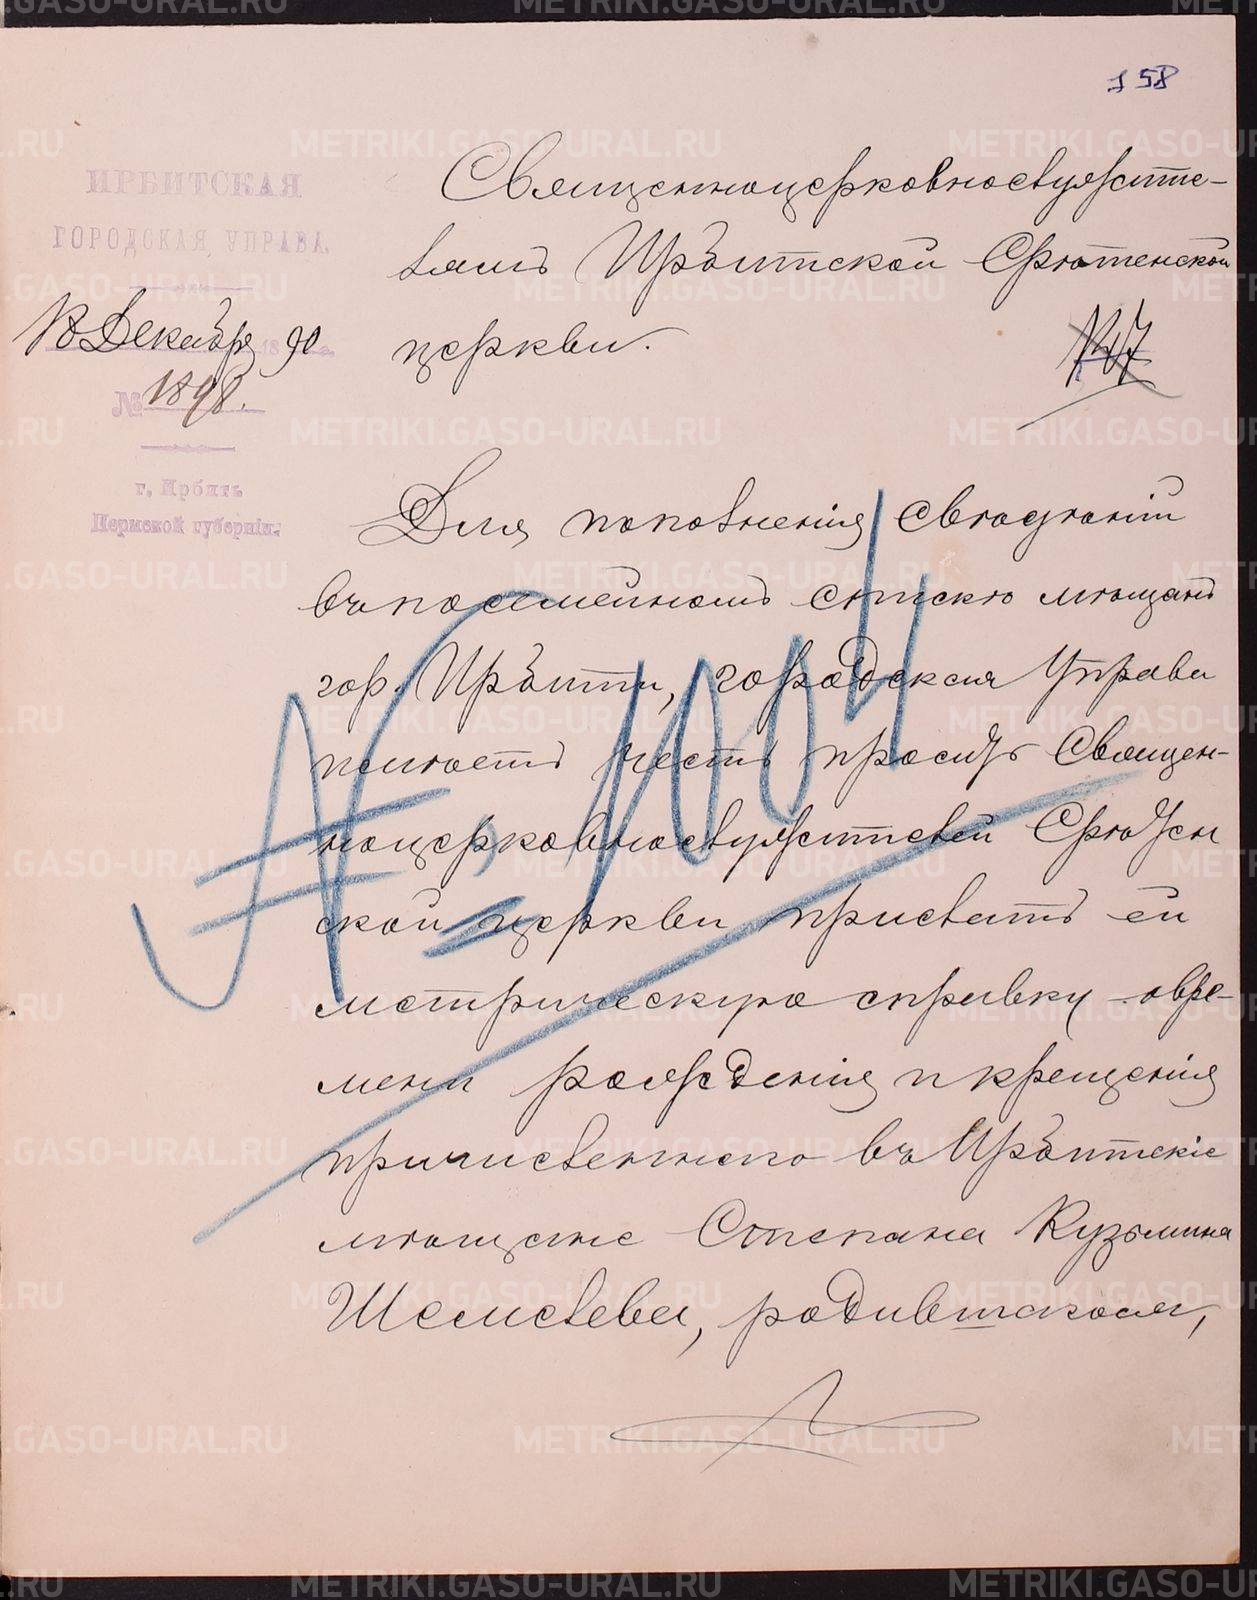 158
ИРБИТСКАЯ
ГОРОДСКАЯ УПРАВА.
18 Декабря 1890 г.
№ 1898.
г. Ирбитъ
Пермской губерніи.
Священноцерковнослужите-
лямъ Ирбитской Срѣтенской
церкви.
Для пополненія свѣдѣній
въ посемейномъ спискѣ мѣщанъ
гор. Ирбити, городская Управа
имѣетъ честь просить Священ-
ноцерковнослужителей Срѣтен
ской церкви прислать ей
метрическую справку о вре-
мени рожденія и крещенія
причисленнаго въ Ирбитскіе
мѣщане Степана Кузьмина
Шемелева, родившагося,
№ 1004
METRIKI.GASO-URAL.RU